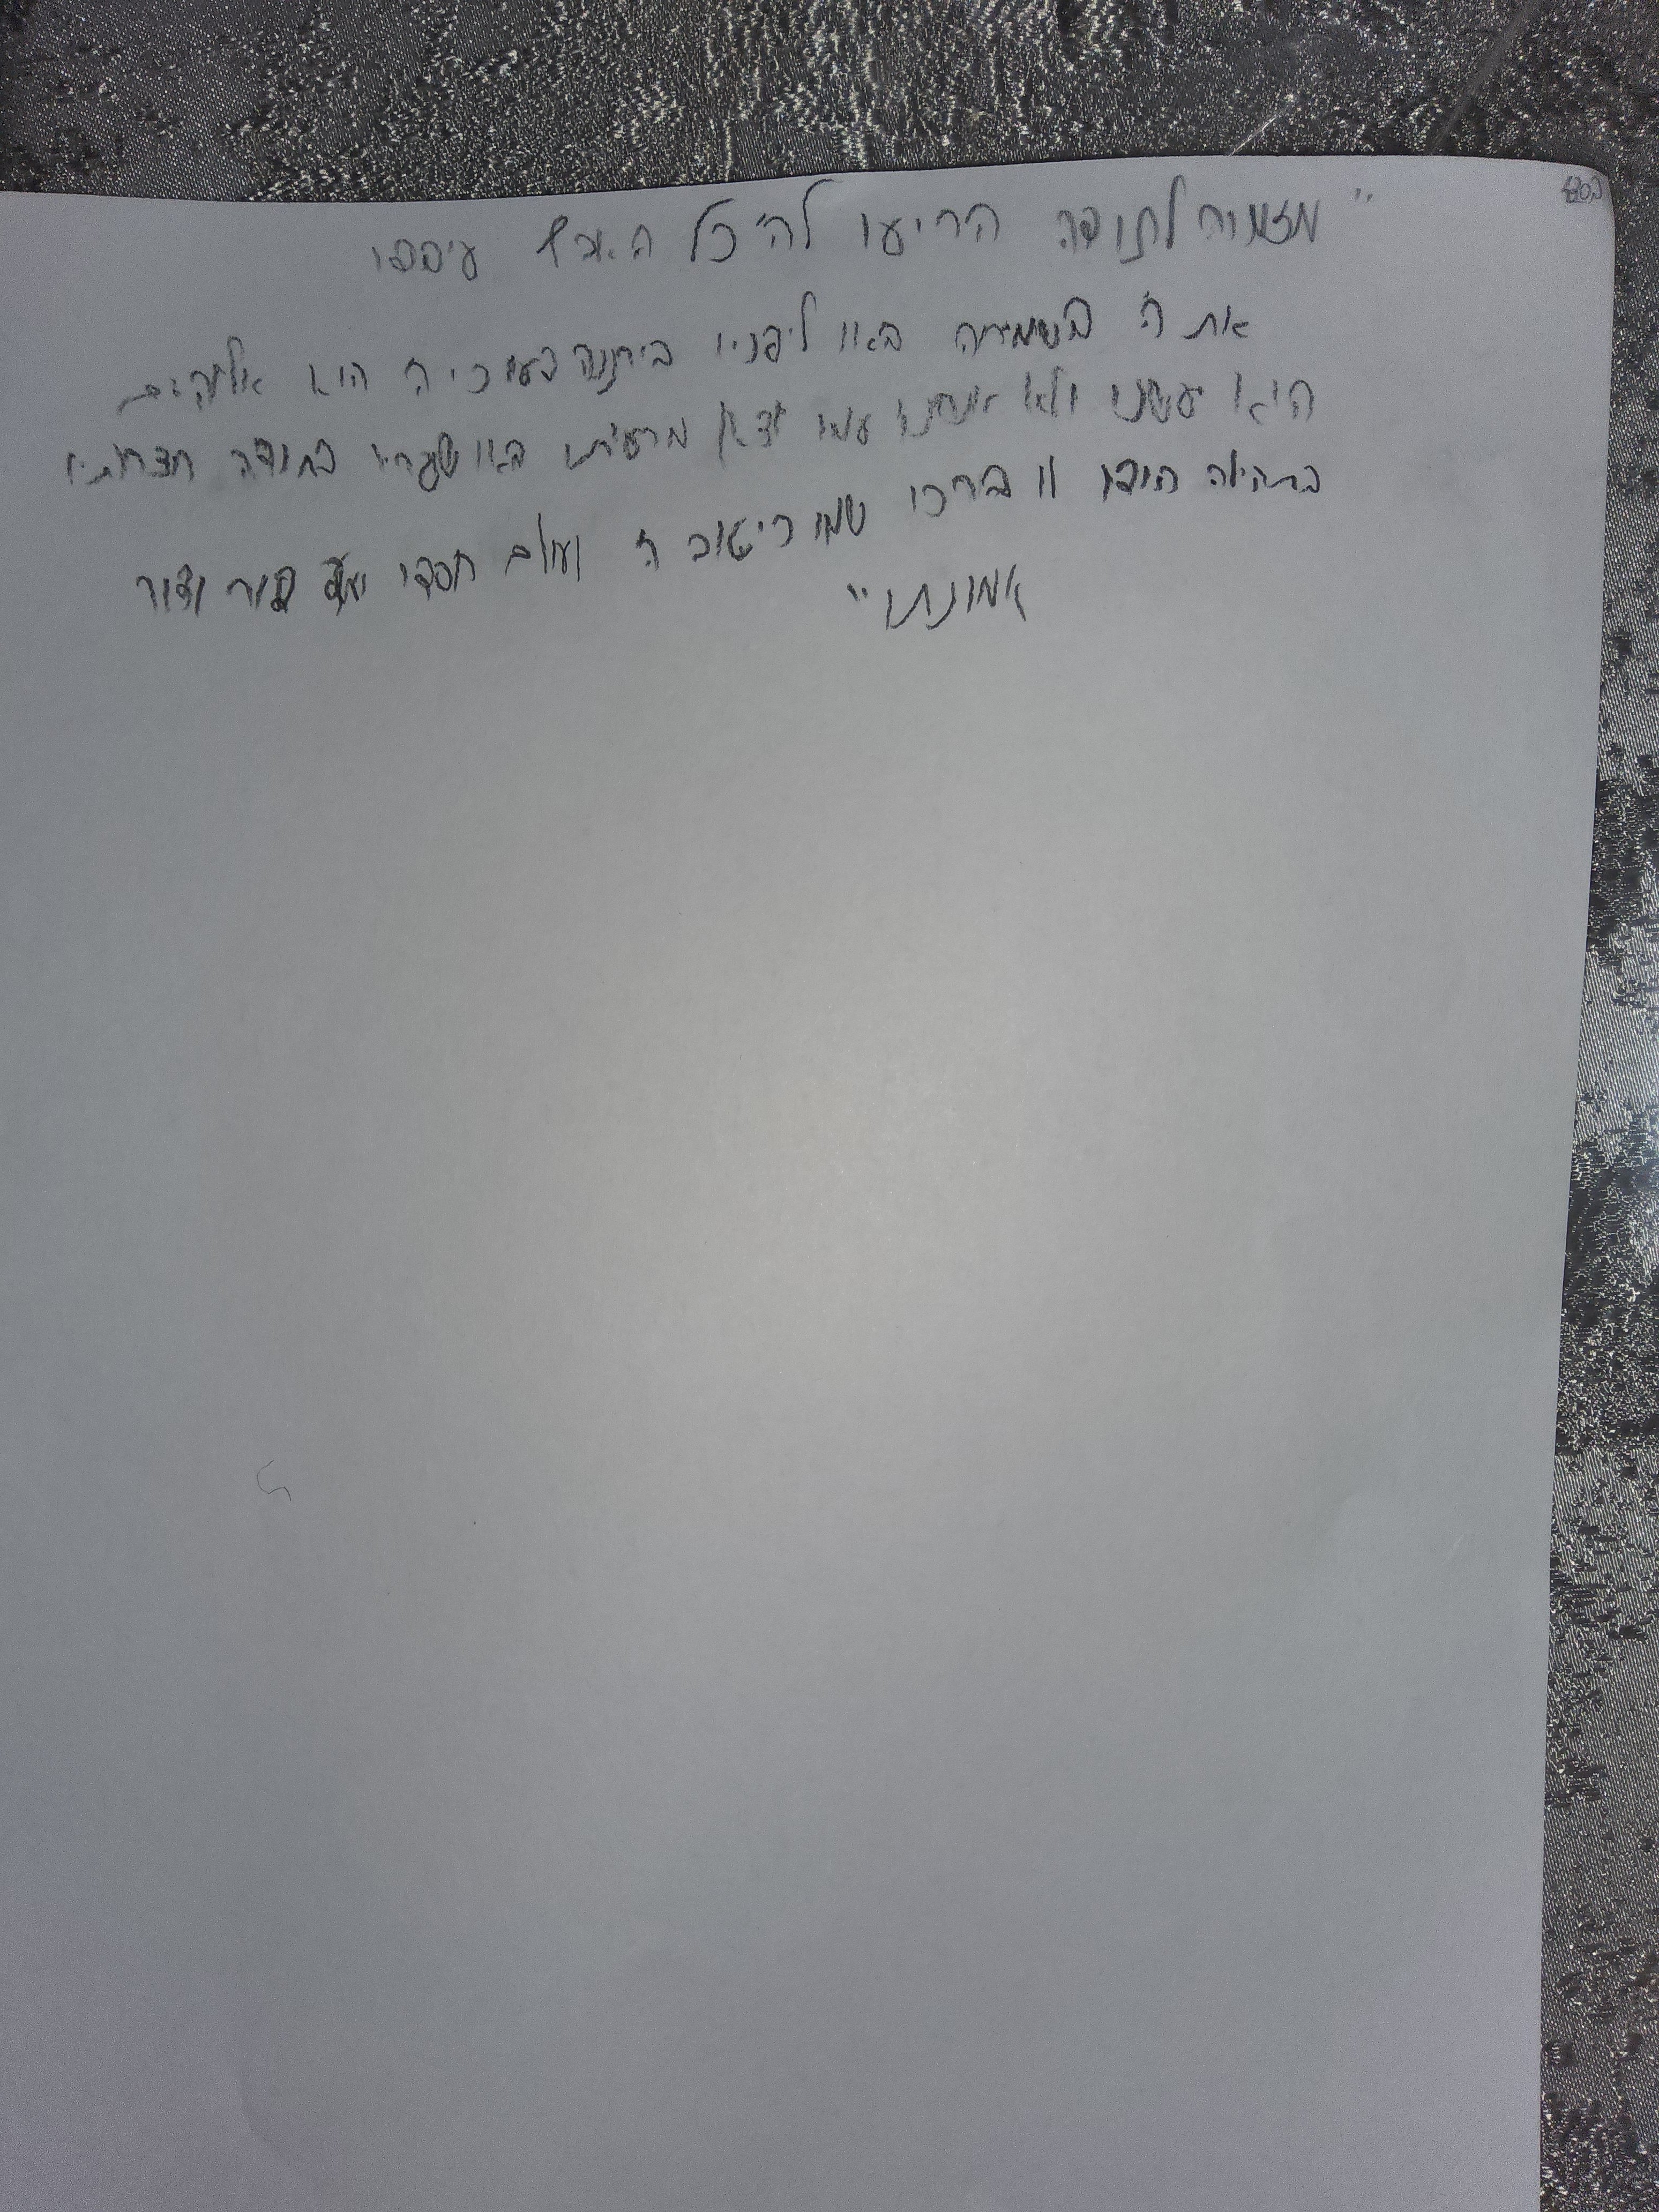 "מזמור לתודה הריעו לה' כל הארץ עיבדו
את ה' בשמחה באו לפניו ביRננה דעו כי ה' הוא אלוהים
הוא עשנו ולא אנחנו עמו וצאן מרעיתו באו שעריו בתודה חצרותיו
בתהילה הודו לו ברכו שמו כי טוב ה' לעולם חסדו ועד דור ודור
אמונתו"